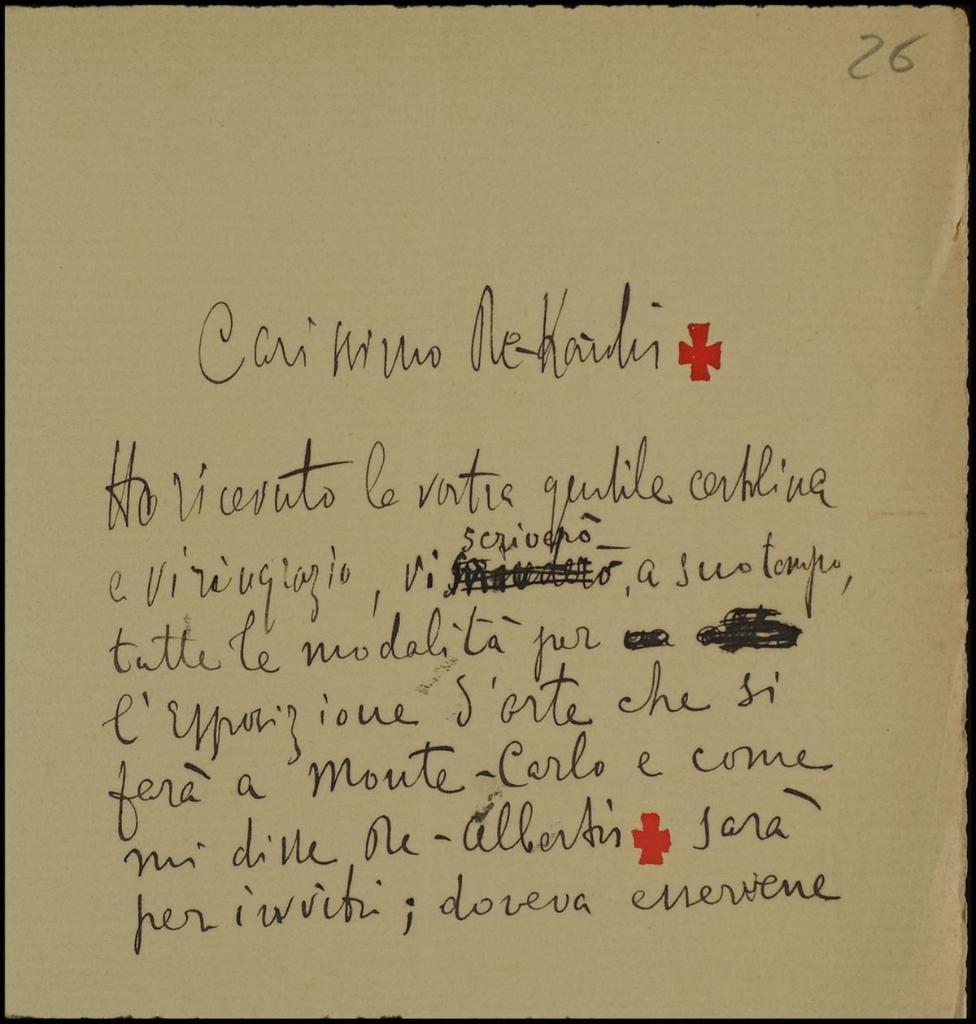 26
Carissimo Re-Kardis
Ho ricevuto la vostra gentile cartolina
scriverò
e vi ringrazio, vi a suo tempo,
tutte le modalità per
l'Esposizione d'arte che si
farà a Monte-Carlo e come
mi disse Re-Albertis sarà
per inviti; doveva esservene